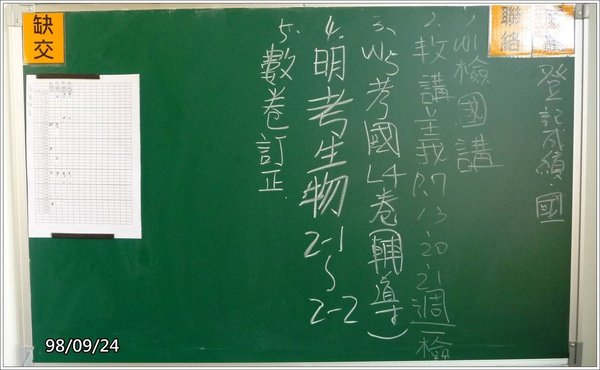 登記成績:國
聯絡
1. W1檢國講
2. 數講義P.7、13、20、21週一檢
3. W5考國L4卷(輔導)
4. 明考生物2-1~2-2
5. 數卷訂正.
缺交
98/09/24